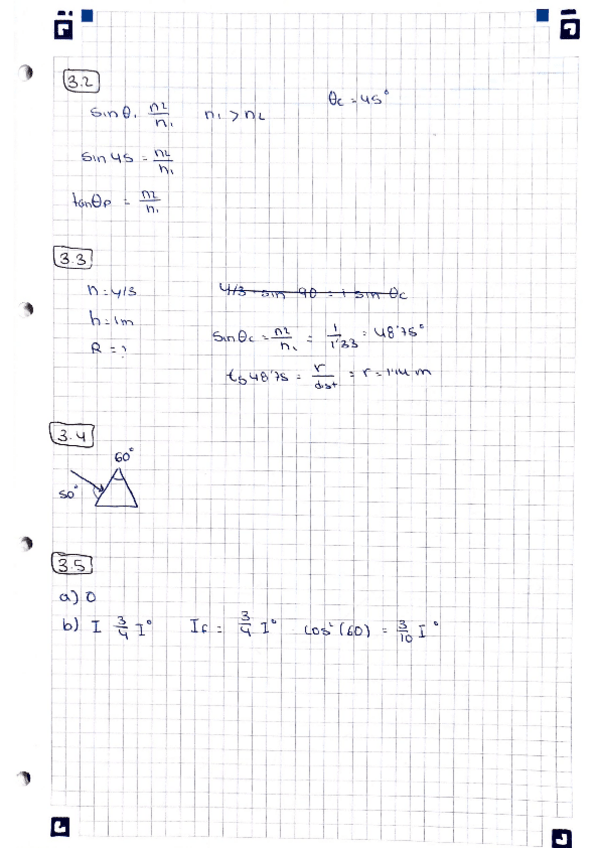 3.2
θc = 45°
sin θ. n2/n1 n1 > n2
sin 45 = n2/n1
tan θp = n2/n1
3.3
n = 4/3
4/3 · sin 90 = 1 sin θc
h = 1m
sin θc = n2/n1 = 1/1'33 = 48'75°
R = ?
tg 48'75 = r/dist = r = 1'14 m
3.4
60°
50°
3.5
a) 0
b) I 3/4 I° If = 3/4 I° cos² (60) = 3/10 I°